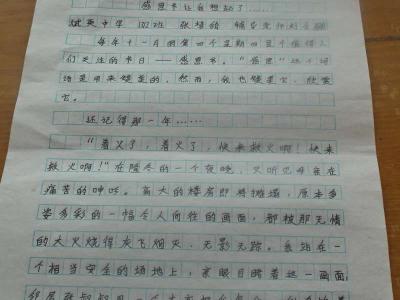 感恩节让我想起了……
试英中学 102班 张 辅
每年十一月的第四个星期四是个值得人
们关注的节日——感恩节。“感恩”这个词
语是用来赞美的,然而,我也赞美它,欣赏
它。
还记得那一年……
“着火了,着火了,快来救火啊!快来
救火啊!”在隆冬的一个夜晚,只听见母亲在
痛苦的呻吟。高大的楼房即将摊塌,原本多
姿多彩的一幅令人向往的画面,都被那无情
的大火烧得灰飞烟灭、无影无踪。我站在一
个相当安全的场地上,亲眼目睹着这一画面,